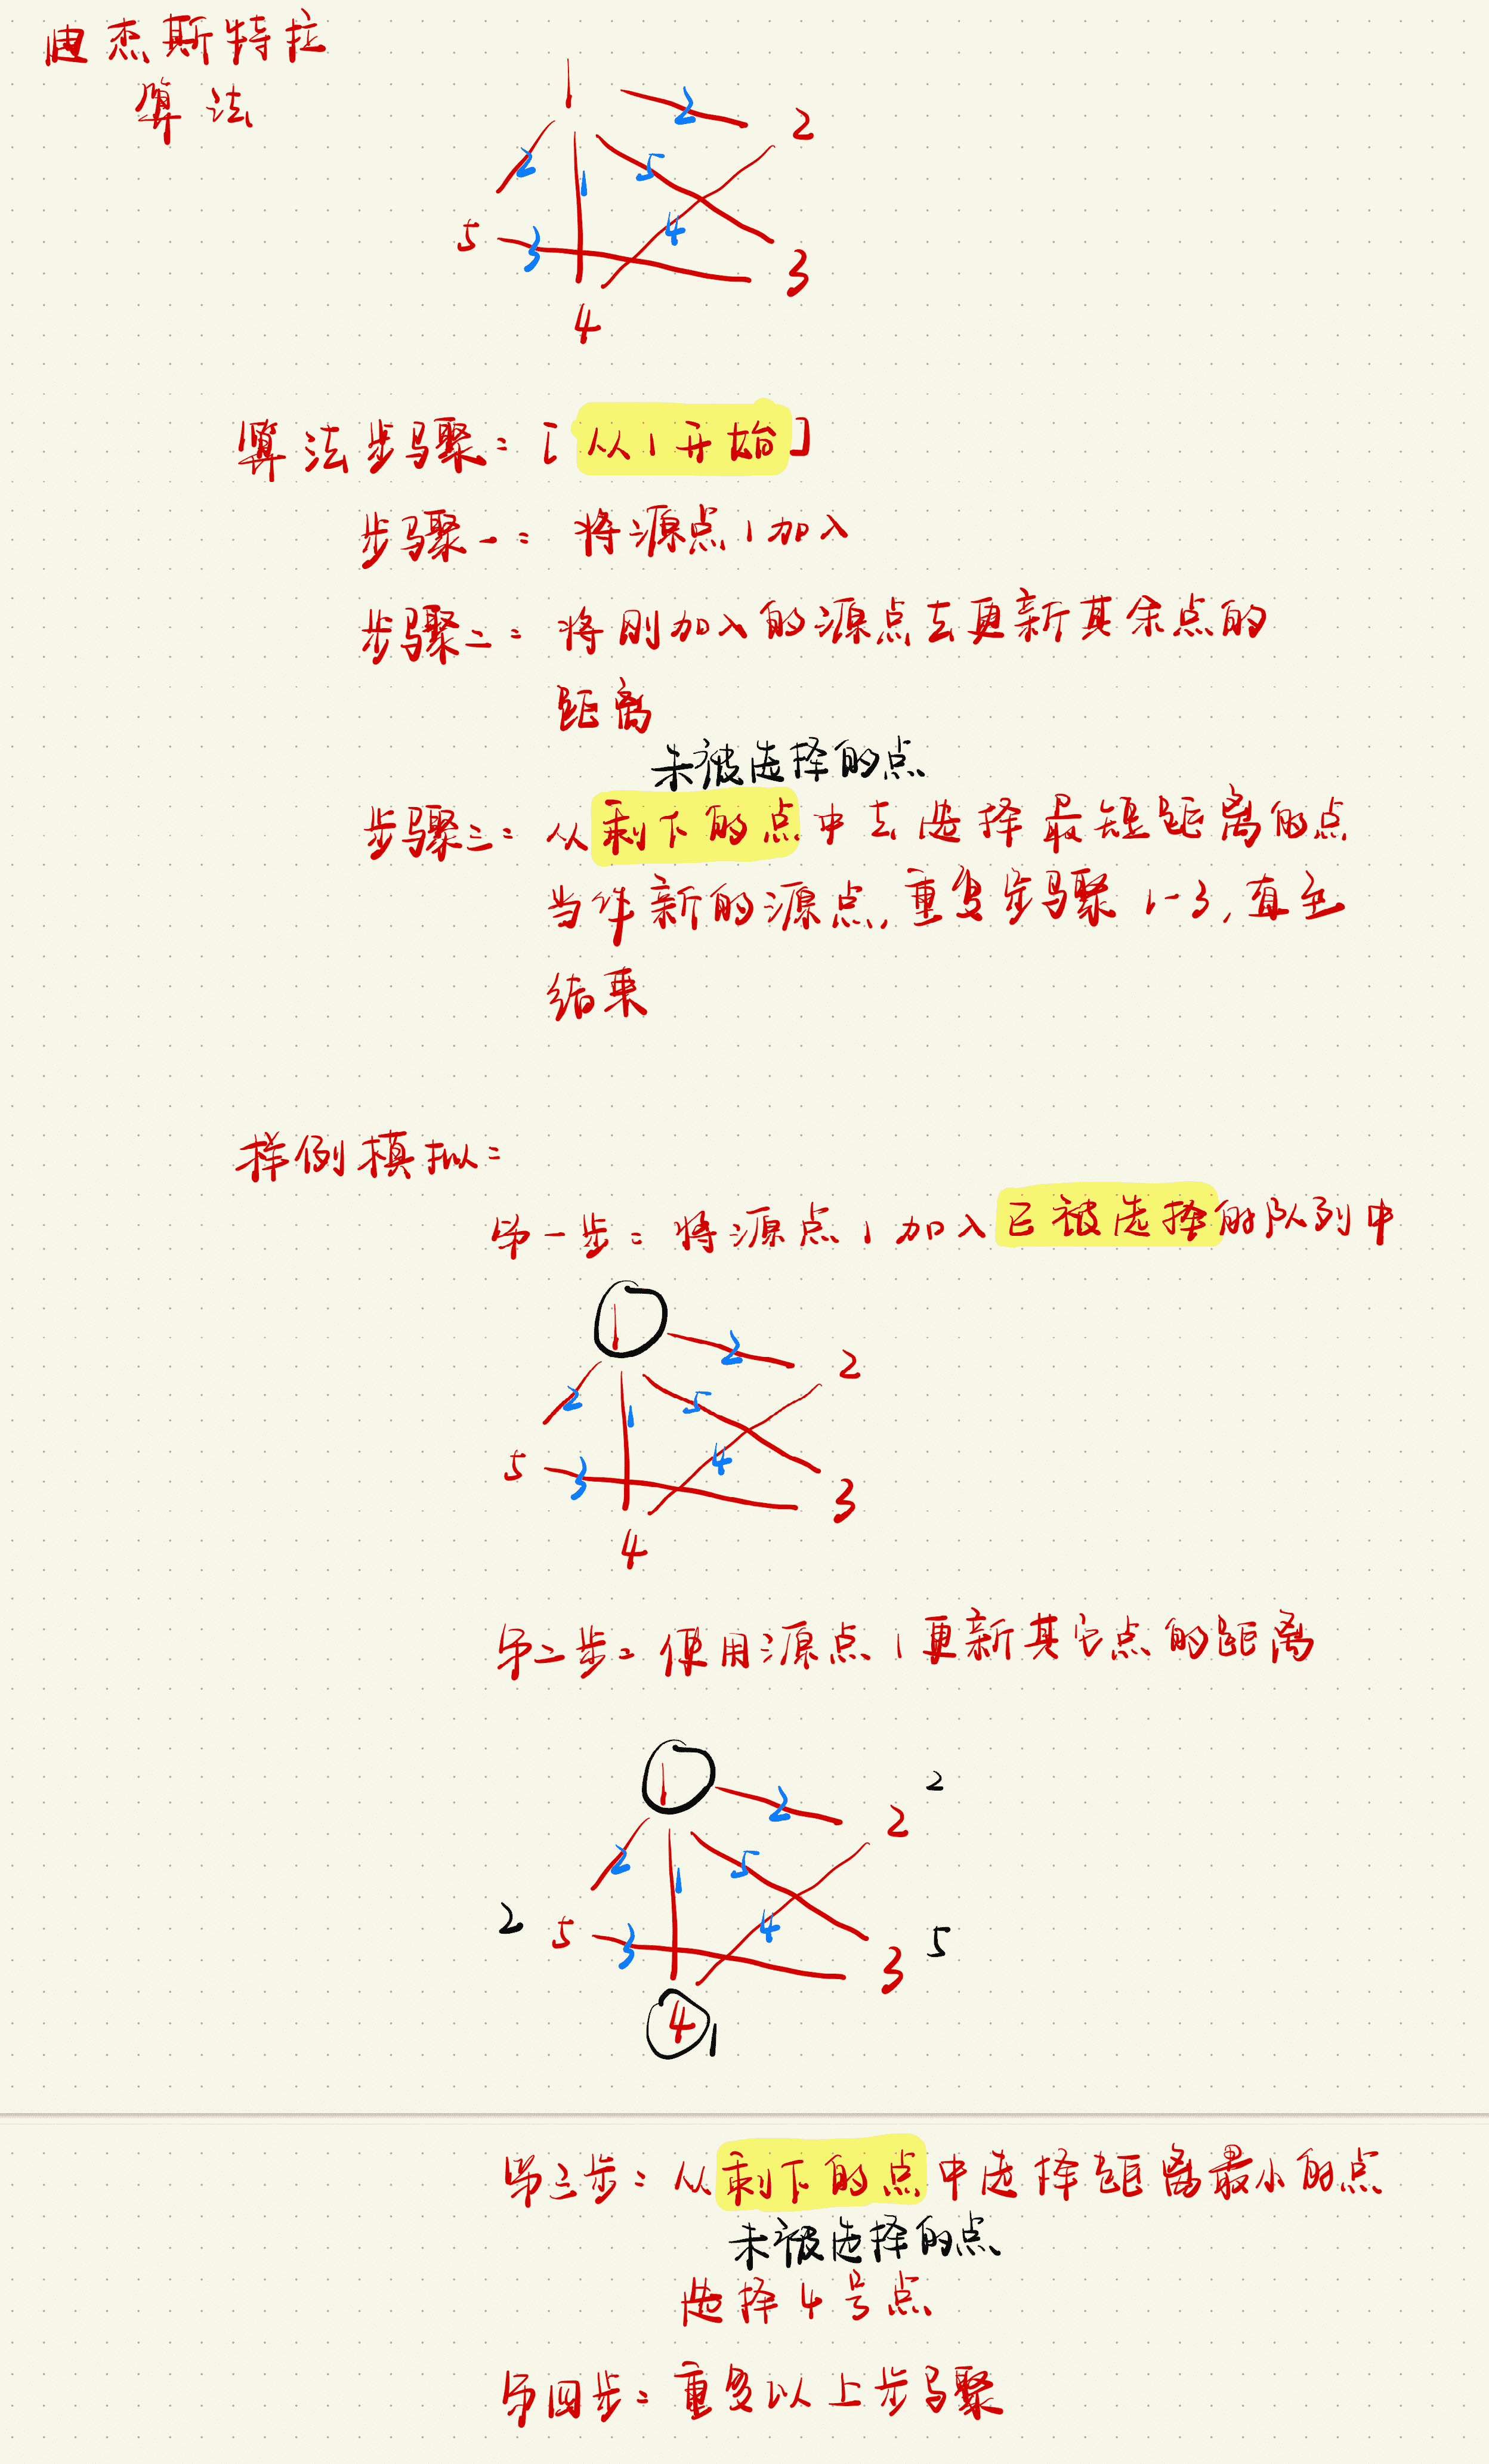 迪杰斯特拉
算法
1
2
2
2
1
5
4
5
3
3
4
算法步骤：[从1开始]
步骤一：将源点1加入
步骤二：将刚加入的源点去更新其余点的
距离
未被选择的点
步骤三：从剩下的点中去选择最短距离的点
当作新的源点，重复步骤1-3，直至
结束
样例模拟：
第一步：将源点1加入已被选择的队列中
1
2
2
2
1
5
4
5
3
3
4
第二步：使用源点1更新其它点的距离
1
2
2
2
2
1
5
4
2
5
3
3
5
4
1
第三步：从剩下的点中选择距离最小的点
未被选择的点
选择4号点
第四步：重复以上步骤